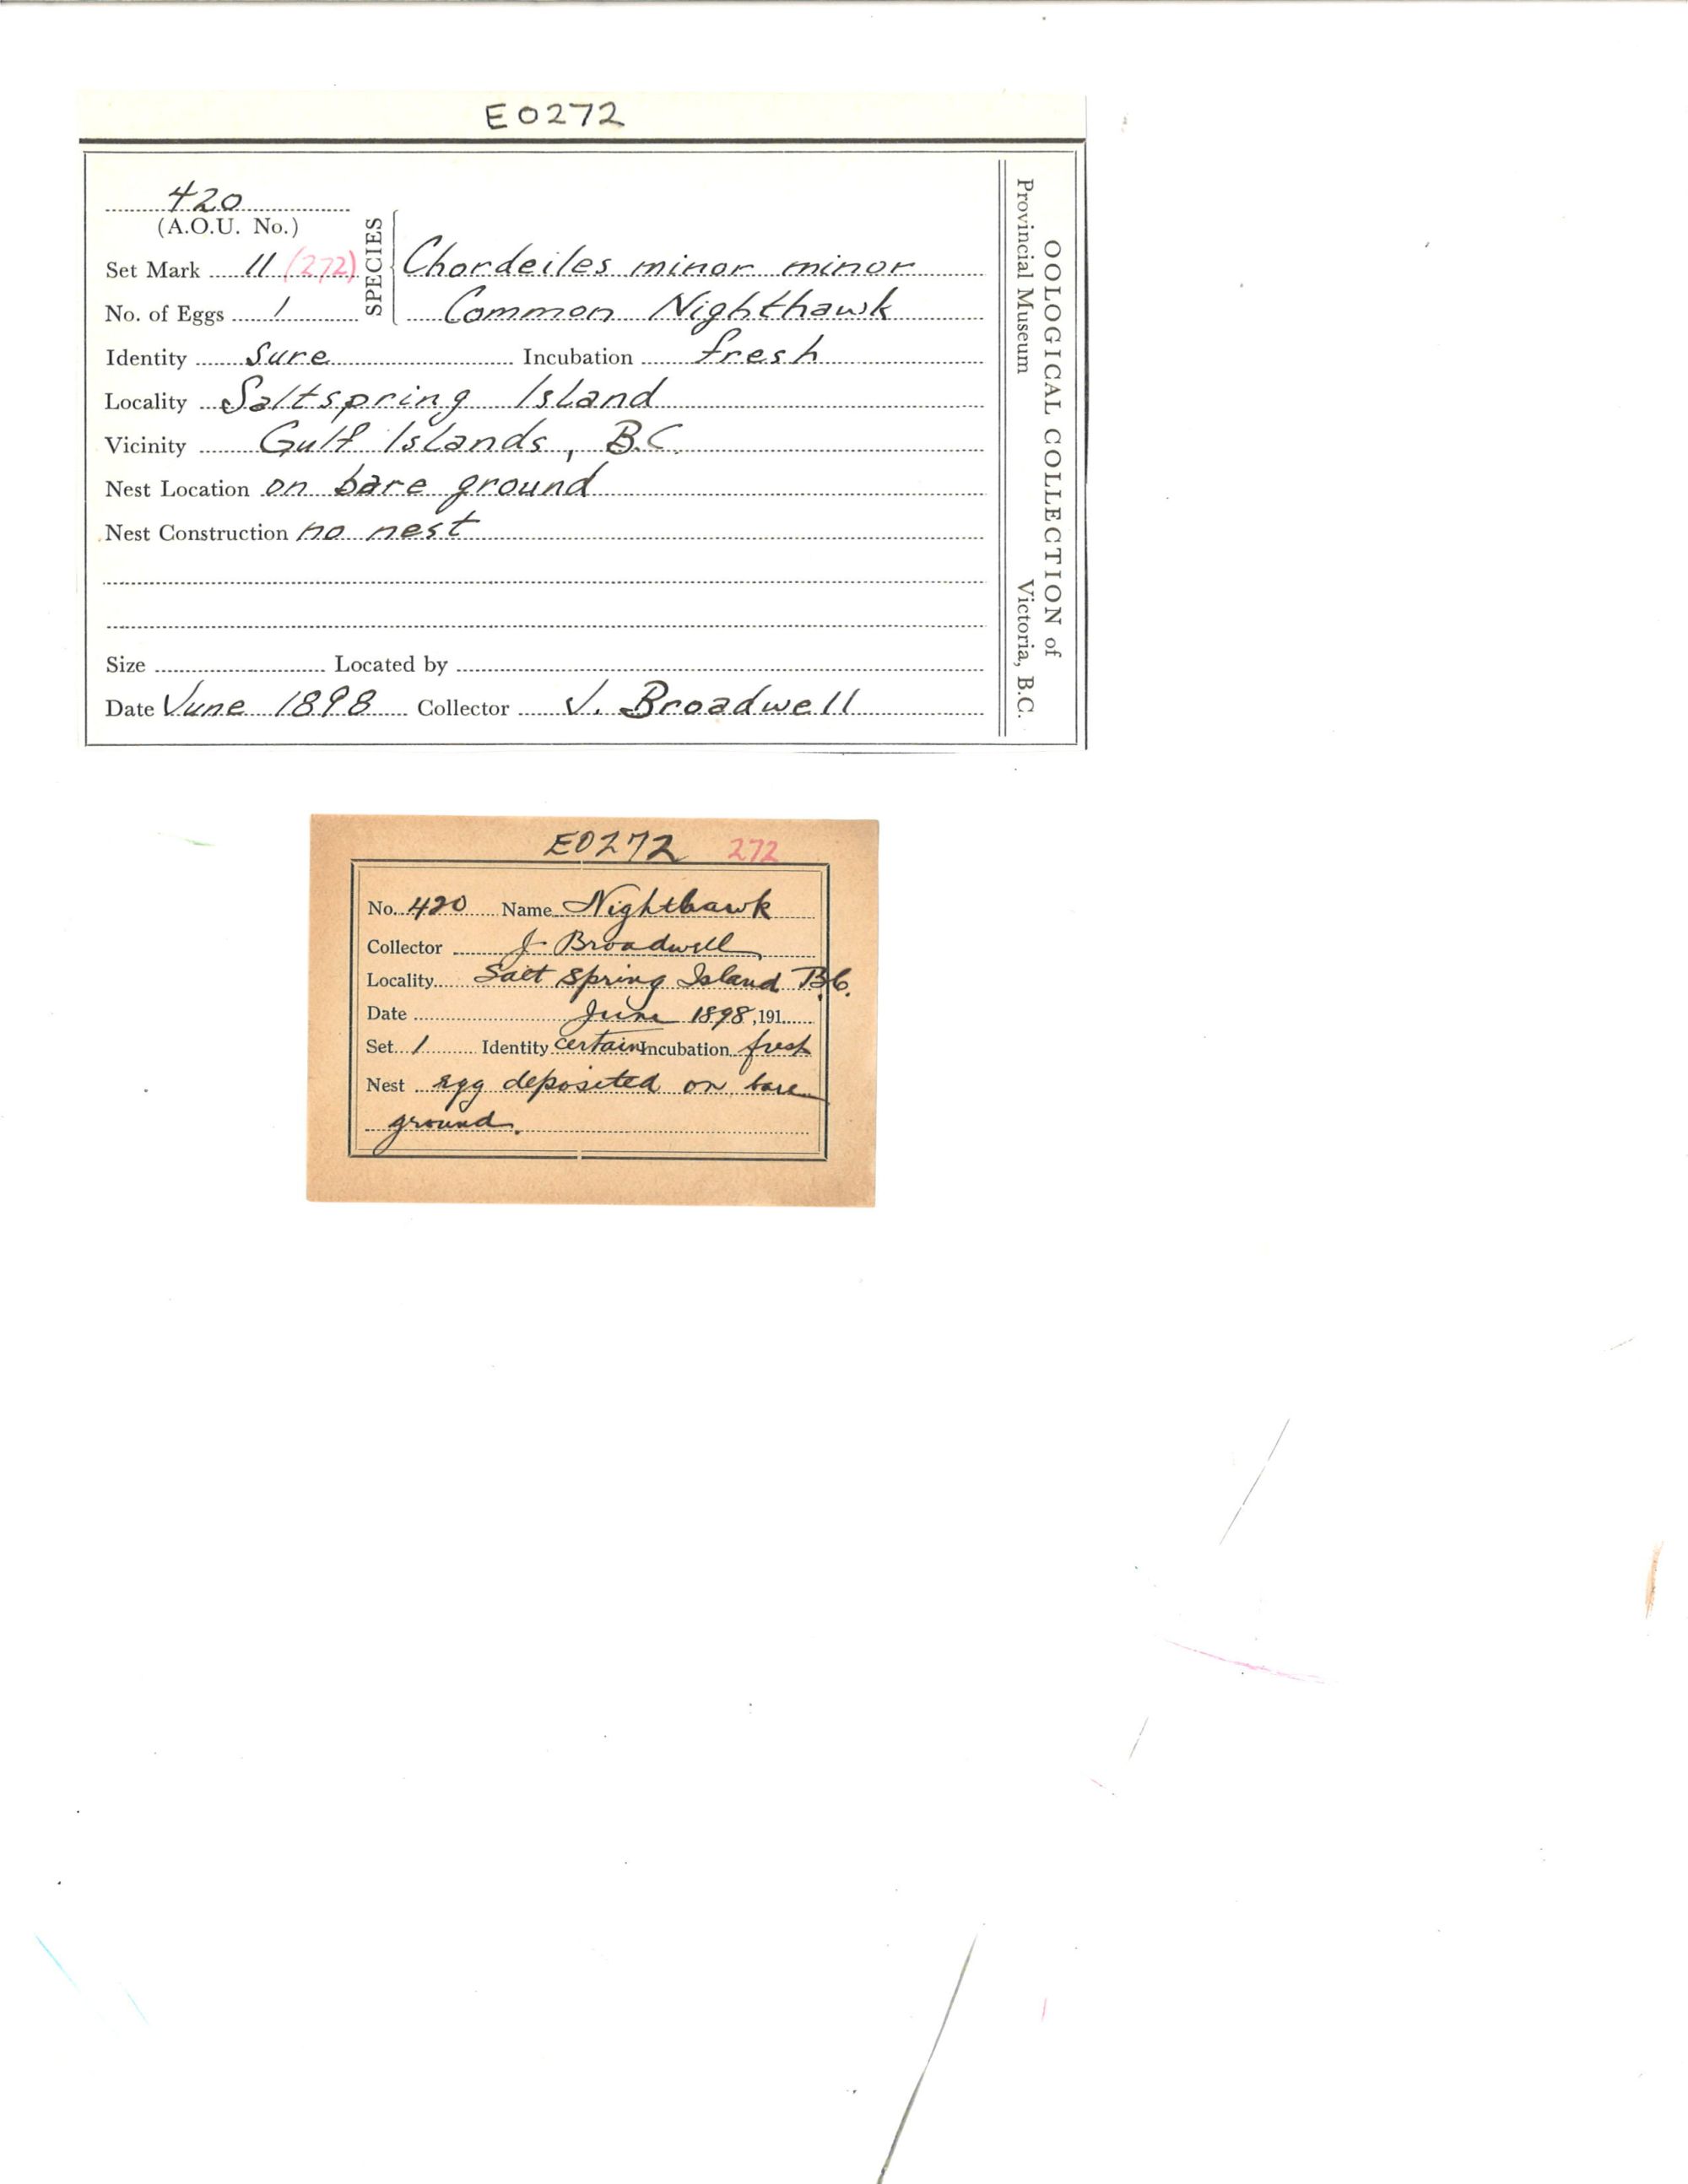 E0272
420
(A.O.U. No.)
Set Mark 11 (272)
No. of Eggs 1
SPECIES
Chordeiles minor minor
Common Nighthawk
Identity Sure Incubation fresh
Locality Saltspring Island
Vicinity Gulf Islands, B.C.
Nest Location on bare ground
Nest Construction no nest
Size Located by
Date June 1898 Collector J. Broadwell
OOLOGICAL COLLECTION of
Provincial Museum Victoria, B.C.
E0272 272
No. 420 Name Nighthawk
Collector J. Broadwell
Locality Salt Spring Island B.C.
Date June 1898, 191
Set 1 Identity certain Incubation fresh
Nest egg deposited on bare
ground.